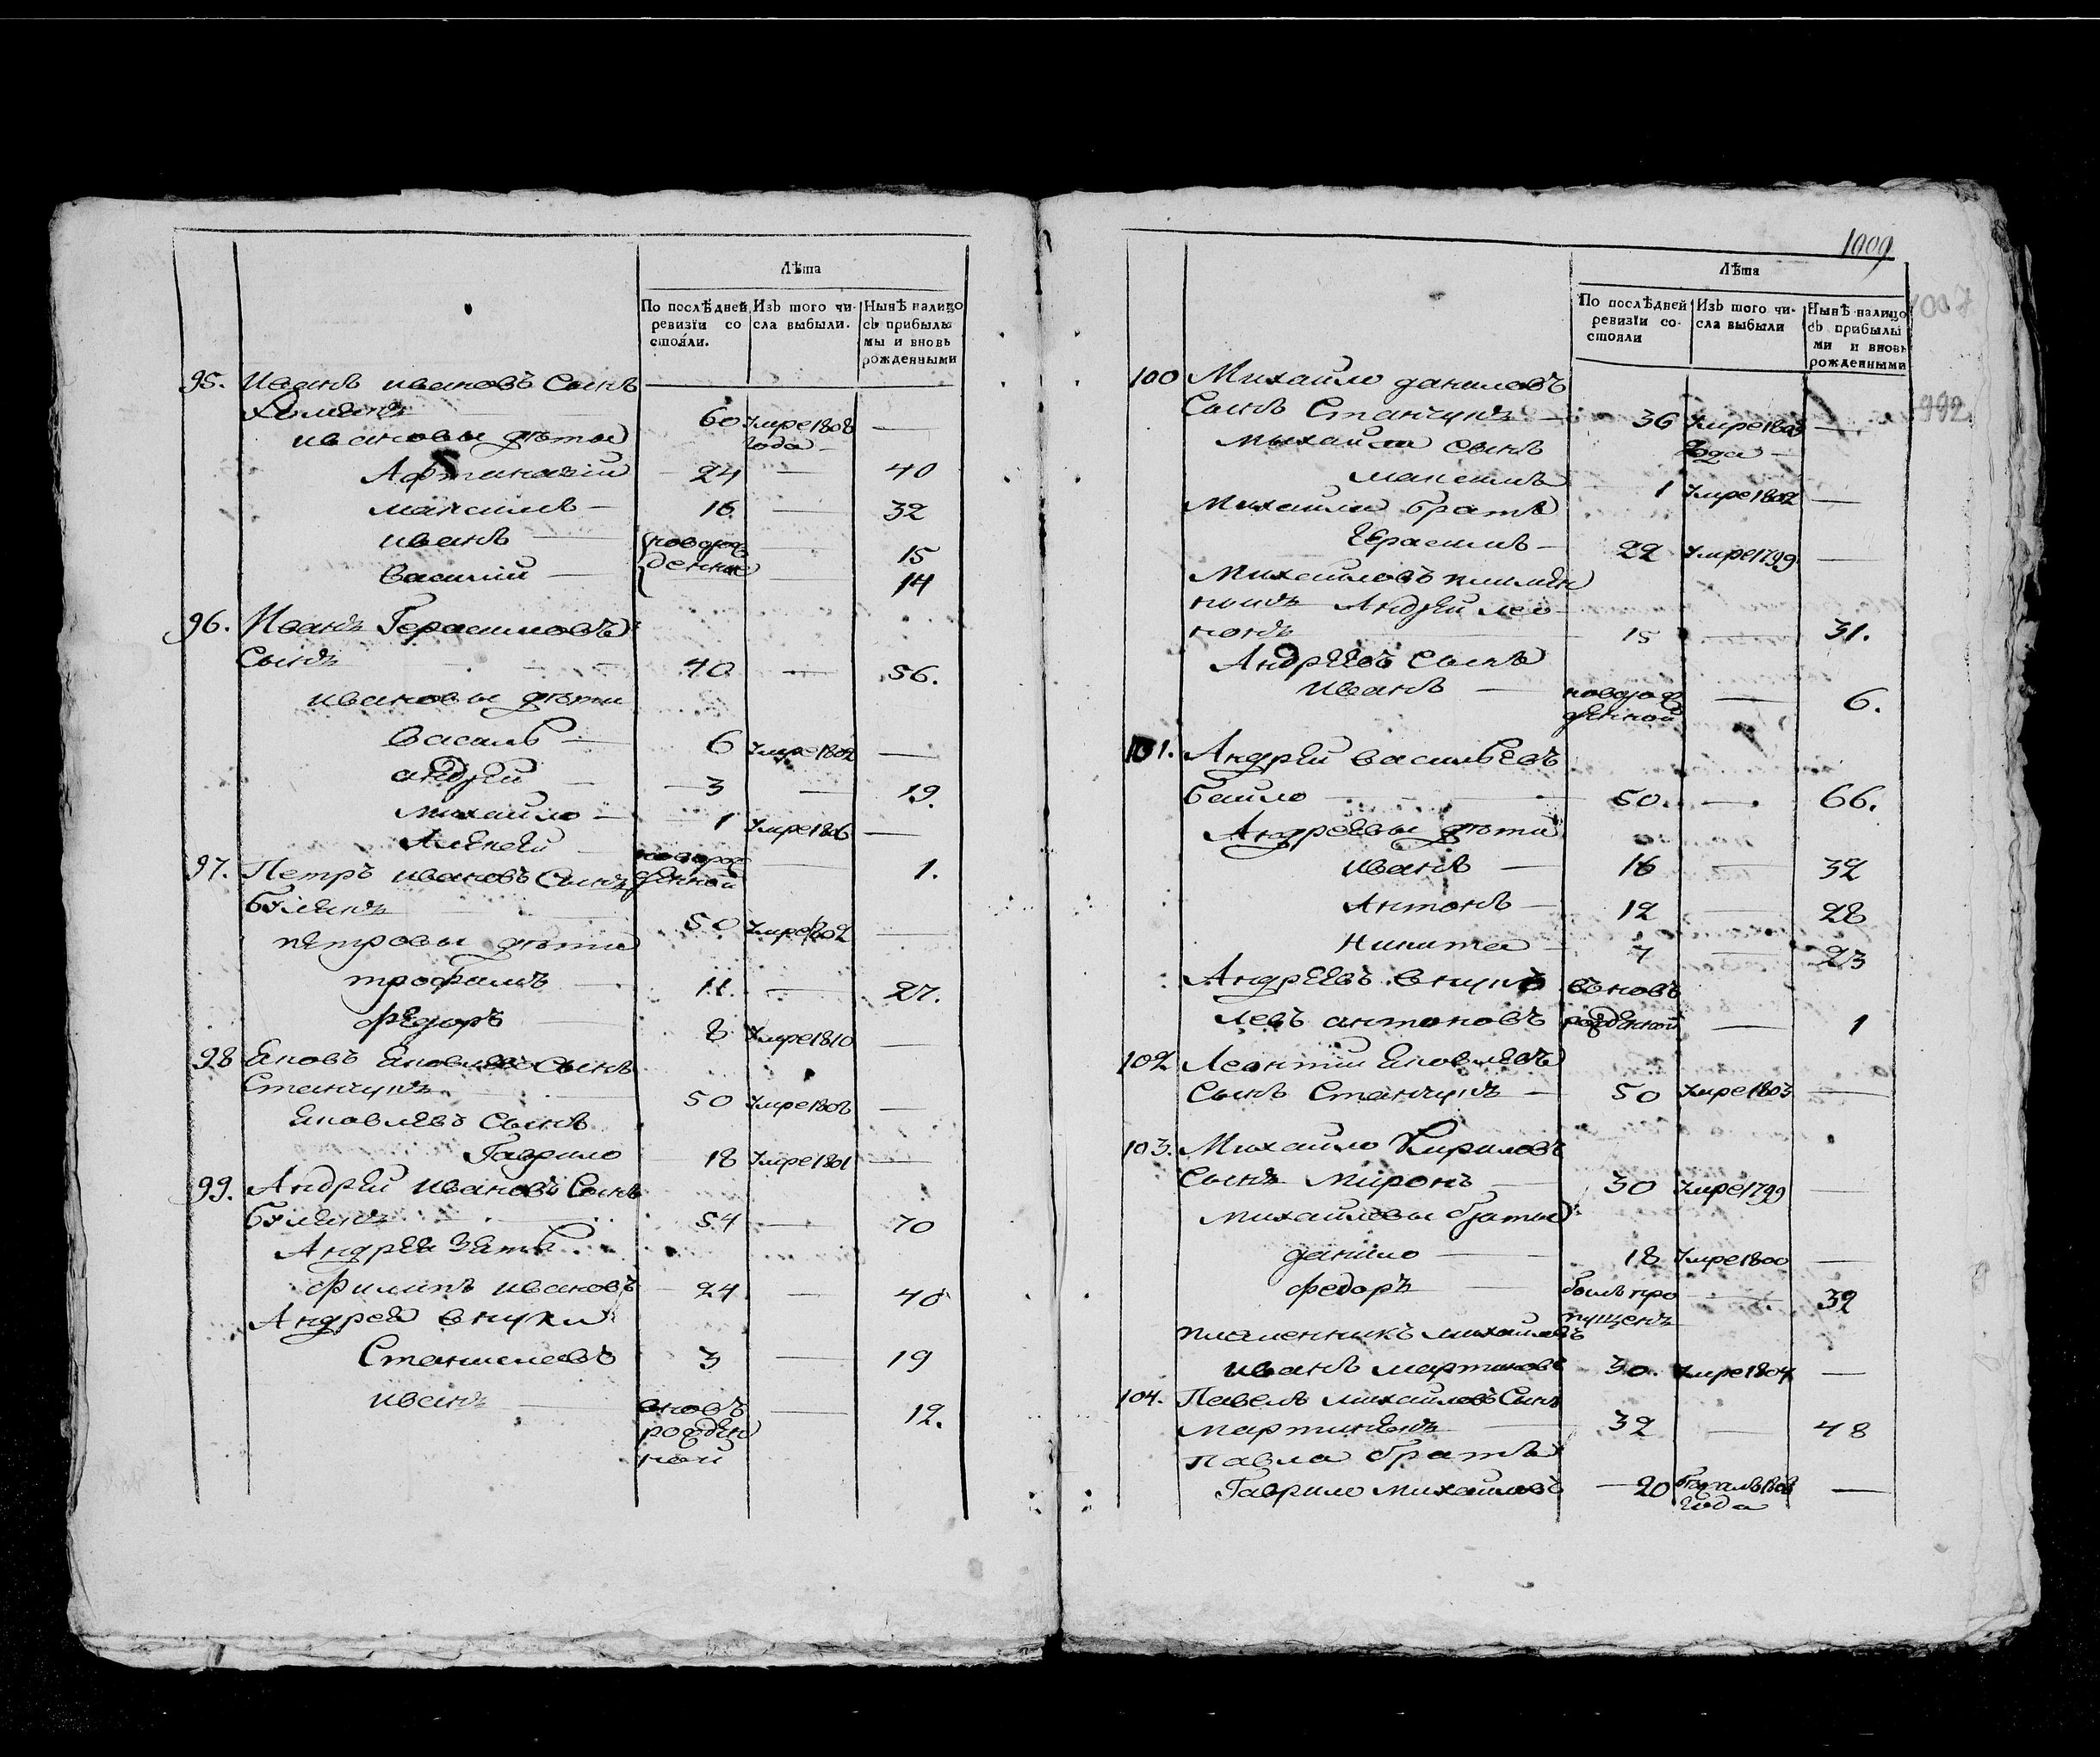 Лѣта
По послѣдней ревизїи состояли.
Изъ того числа выбыли.
Нынѣ налицо съ прибылымы и вновь рожденными
95. Иванъ ивановъ Сынъ
60 Умре 1808 года —
ивановы дѣты
Афтанасій 24 — 40
максимъ — 16 — 32
иванъ — новорож 15
Василій — денные 14
96. Иванъ Герасимовъ
Сынъ 40 — 56.
ивановы дѣти
Василь — 6 Умре 1802 —
андрей — 3 — 19.
михайло — 1 Умре 1806 —
Алексей — новорож денной — 1.
97. Петръ ивановъ Сынъ
50 Умре 1802 —
петровы дѣти
трофимъ — 11. — 27.
федоръ 8 Умре 1810 —
98 Яковъ Яковлевъ Сынъ
Станчукъ 50 Умре 1808 —
Яковлевъ Сынъ
Гаврило 18 Умре 1801 —
99. Андрей ивановъ Сынъ
54 — 70
Андрея Зять
филипъ ивановъ 24 — 40
Андрея внуки
Станиславъ 3 — 19
иванъ — вновь рожден ной — 12.
1009
1007
992
Лѣта
По послѣдней ревизїи состояли
Изъ того числа выбыли
Нынѣ налицо съ прибылыми и вновь рожденными
100 Михайло даниловъ
Сынъ Станчукъ — 36 Умре 1803 года —
михайла Сынъ
максимъ 1 Умре 1802 —
Михайла братъ
Герасимъ — 22 Умре 1799 —
Михайловъ племян
никъ Андрей лео
нонъ 15 — 31.
Андреевъ Сынъ
иванъ — новорож денной — 6.
101. Андрей васильевъ
Байло — 50. — 66.
Андреевы дѣти
иванъ — 16 — 32
Антонъ — 12 — 28
никита — 7 — 23
Андреевъ внукъ вновь
левъ антоновъ рожденной — 1
102 Леонтий Яковлевъ
Сынъ Станчукъ — 50 Умре 1803 —
103. Михайло Кириловъ
Сынъ Миронъ — 30 Умре 1799 —
михайловы братья
данило — 18 Умре 1800 —
федоръ — былъ про пущенъ — 32
племенникъ михайловъ
иванъ мартиновъ 30. Умре 1804 —
104. Павелъ михайловъ Сынъ
мартинюкъ — 32 — 48
павла братъ
Гаврило михайловъ — 20 бежалъ 1808 года —